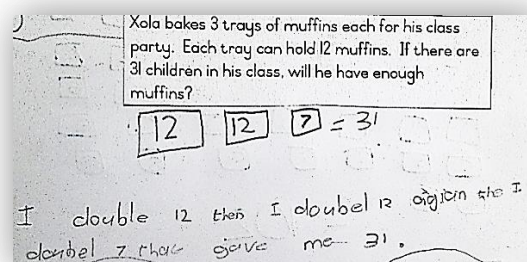 Xola bakes 3 trays of muffins each for his class
party. Each tray can hold 12 muffins. If there are
31 children in his class, will he have enough
muffins?
12 12 7 = 31
I double 12 then I doubel 12 agiain the I
doubel 7 that gave me 31.